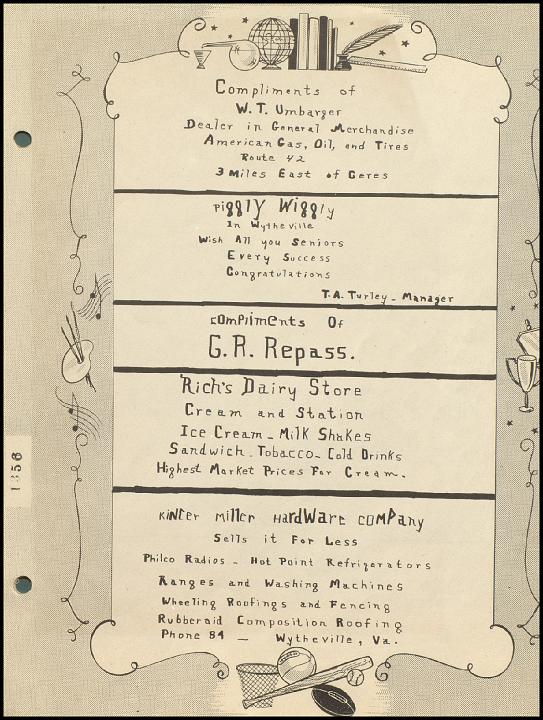 Compliments of
W. T. Umbarger
Dealer in General Merchandise
American Gas, Oil, and Tires
Route 42
3 Miles East of Ceres
Piggly Wiggly
In Wytheville
Wish All you Seniors
Every Success
Congratulations
T.A. Turley - Manager
Compliments Of
G. R. Repass.
Rich's Dairy Store
Cream and Station
Ice Cream - Milk Shakes
Sandwich - Tobacco - Cold Drinks
Highest Market Prices For Cream.
Kincer Miller Hardware Company
Sells it For Less
Philco Radios - Hot Point Refrigerators
Ranges and Washing Machines
Wheeling Roofings and Fencing
Rubberaid Composition Roofing
Phone 84 - Wytheville, Va.